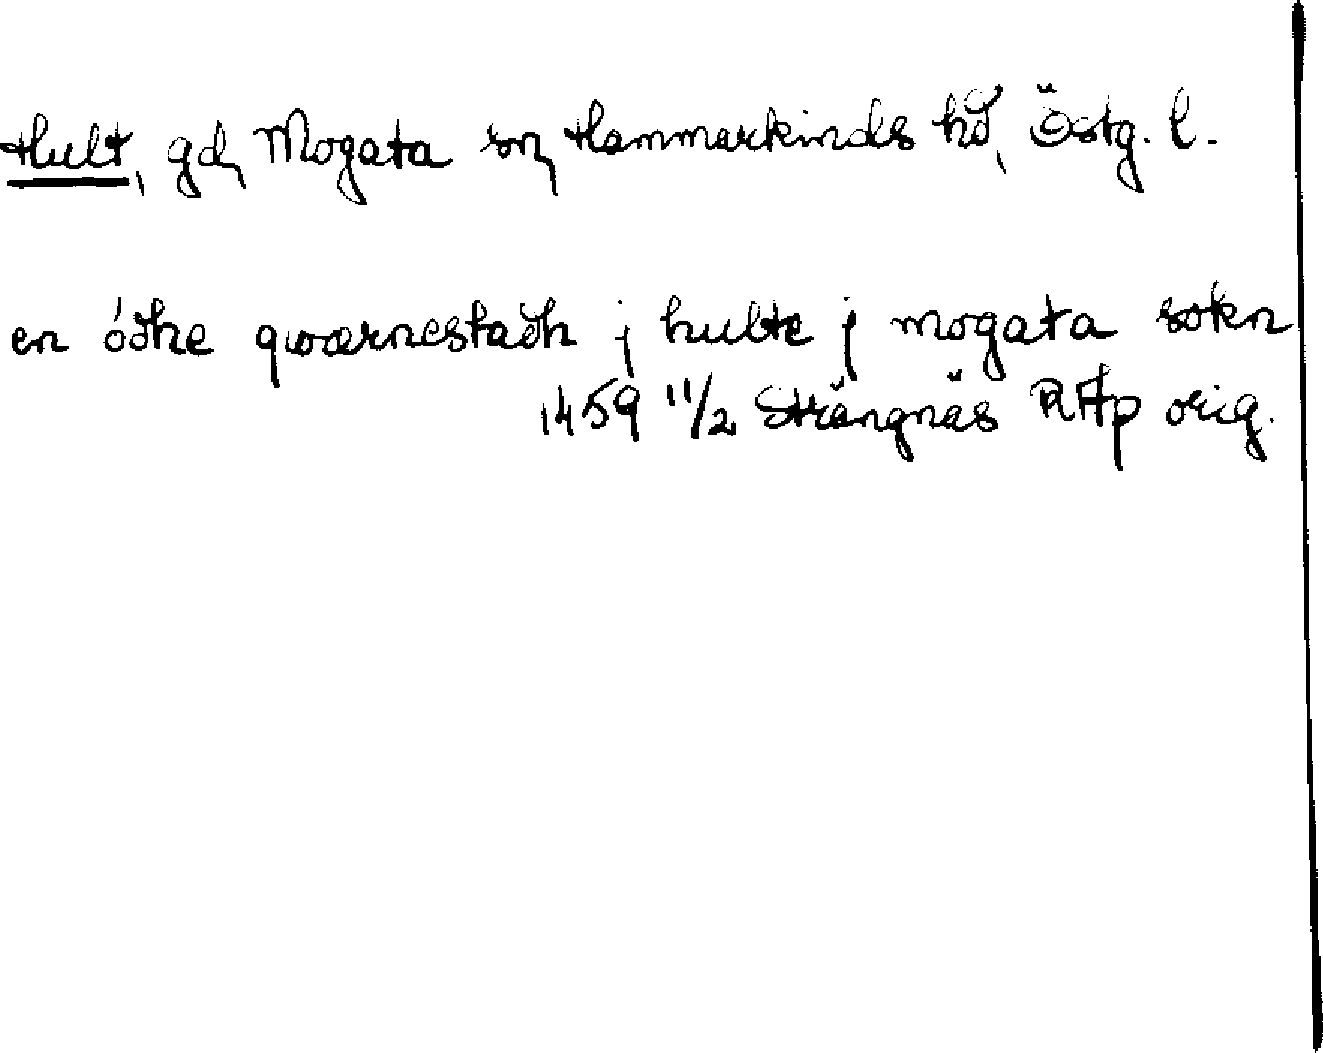 Hult, gd, Mogata sn, Hammarkinds hd, Östg. l.
en ódhe qwærnestadh j hulte j mogata sokn
1459 11/2 Strängnäs RAp orig.